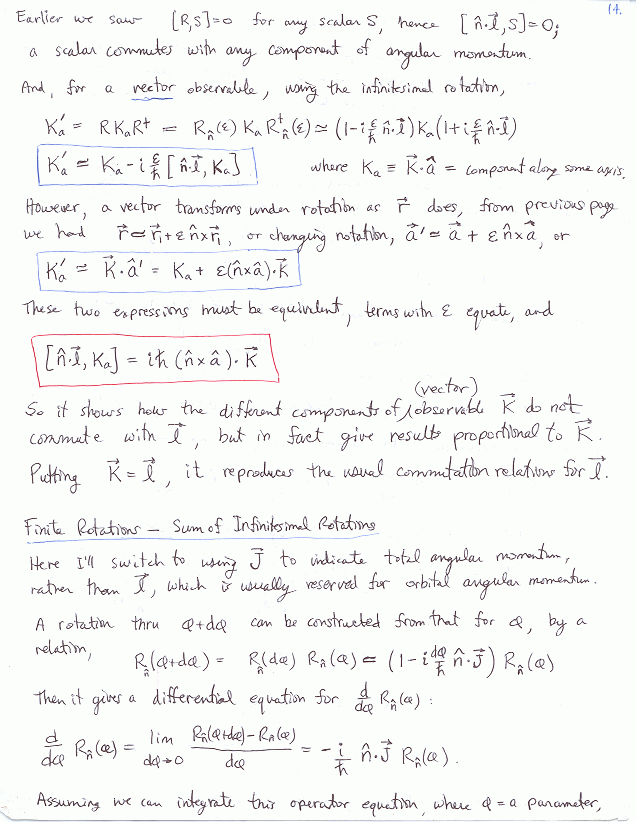 14.
Earlier we saw [R,S]=0 for any scalar S, hence [n̂·l⃗,S]=0;
a scalar commutes with any component of angular momentum.
And, for a vector observable, using the infinitesimal rotation,
Kₐ′ = RKₐR† = R_n̂(ε) Kₐ R†_n̂(ε) ≃ (1-i ε/ħ n̂·l⃗)Kₐ(1+i ε/ħ n̂·l⃗)
Kₐ′ ≃ Kₐ - i ε/ħ [n̂·l⃗, Kₐ] where Kₐ ≡ K⃗·â = component along some axis.
However, a vector transforms under rotation as r⃗ does, from previous page
we had r⃗ ≃ r⃗₁ + ε n̂×r⃗₁, or changing notation, a⃗′ ≃ a⃗ + ε n̂×a⃗, or
Kₐ′ = K⃗·â′ = Kₐ + ε(n̂×â)·K⃗
These two expressions must be equivalent, terms with ε equate, and
[n̂·l⃗, Kₐ] = iħ (n̂×â)·K⃗
(vector)
So it shows how the different components of observable K⃗ do not
commute with l⃗, but in fact give results proportional to K⃗.
Putting K⃗ = l⃗, it reproduces the usual commutation relations for l⃗.
Finite Rotations – Sum of Infinitesimal Rotations
Here I'll switch to using J⃗ to indicate total angular momentum,
rather than l⃗, which is usually reserved for orbital angular momentum.
A rotation thru φ+dφ can be constructed from that for φ, by a
relation, R_n̂(φ+dφ) = R_n̂(dφ) R_n̂(φ) = (1-i dφ/ħ n̂·J⃗) R_n̂(φ)
Then it gives a differential equation for d/dφ R_n̂(φ):
d/dφ R_n̂(φ) = lim dφ→0 R_n̂(φ+dφ)-R_n̂(φ) / dφ = - i/ħ n̂·J⃗ R_n̂(φ).
Assuming we can integrate this operator equation, where φ = a parameter,